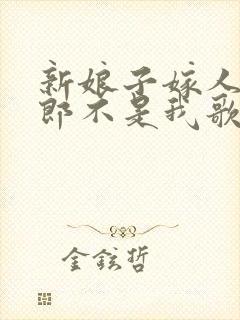 新娘子嫁人
郎不是我歌
金铉哲